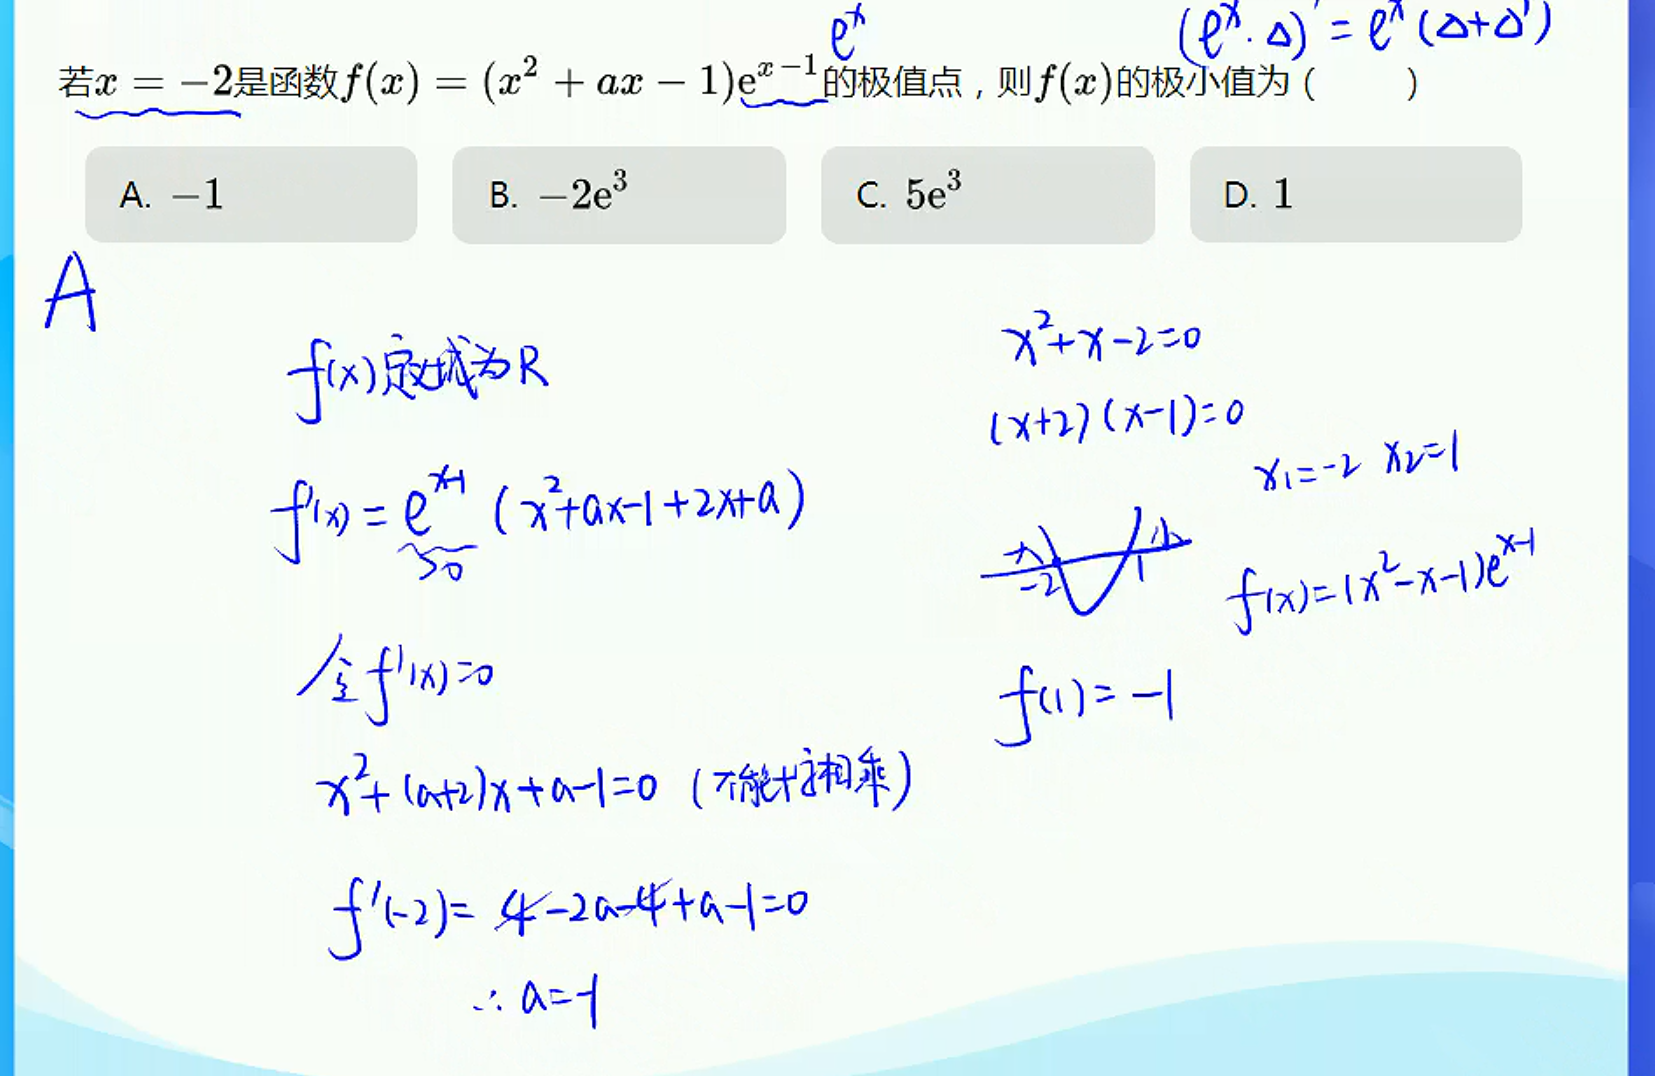 eˣ
(eˣ·Δ)' = eˣ(Δ+Δ')
若x = −2是函数f(x) = (x² + ax − 1)eˣ⁻¹的极值点，则f(x)的极小值为（　　）
A. −1
B. −2e³
C. 5e³
D. 1
A
f(x)定义域为R
f'(x) = eˣ⁻¹(x²+ax-1+2x+a)
>0
令f'(x)=0
x²+(a+2)x+a-1=0 (不能十字相乘)
f'(-2)= 4-2a-4+a-1=0
∴ a=-1
x²+x-2=0
(x+2)(x-1)=0
x₁=-2 x₂=1
-2 1
f(x)=(x²-x-1)eˣ⁻¹
f(1)= -1